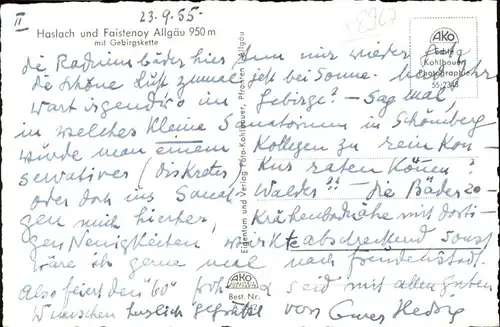 II
23.9.55-
Haslach und Faistenoy Allgäu 950 m
mit Gebirgskette
AKO
Echte
Kohlbauer
Photographie
55/2348
die Radiumbäder hier tun mir wieder
die schöne Luft zumal jetzt bei Sonne.
wart irgendwo im Gebirge? - Sag mal,
in welches kleine Sanatorium in Schömberg
würde man einem Kollegen zu rein kon-
servativer (diskreter) Kur raten können?
oder doch ins Sanat. Waldek? - die Bäder zo-
gen mich hierher, Krähenbadnähe mit dorti-
gen Neuigkeiten, wirkte abschreckend sonst
wäre ich gerne mal nach Freudenstadt.
Also feiert den "60" froh und seid mit allen guten
Wünschen herzlich gegrüßt von Eurer Hedwig
Eigentum und Verlag Foto-Kohlbauer, Pfronten (Allgäu)
AKO
Best. Nr.